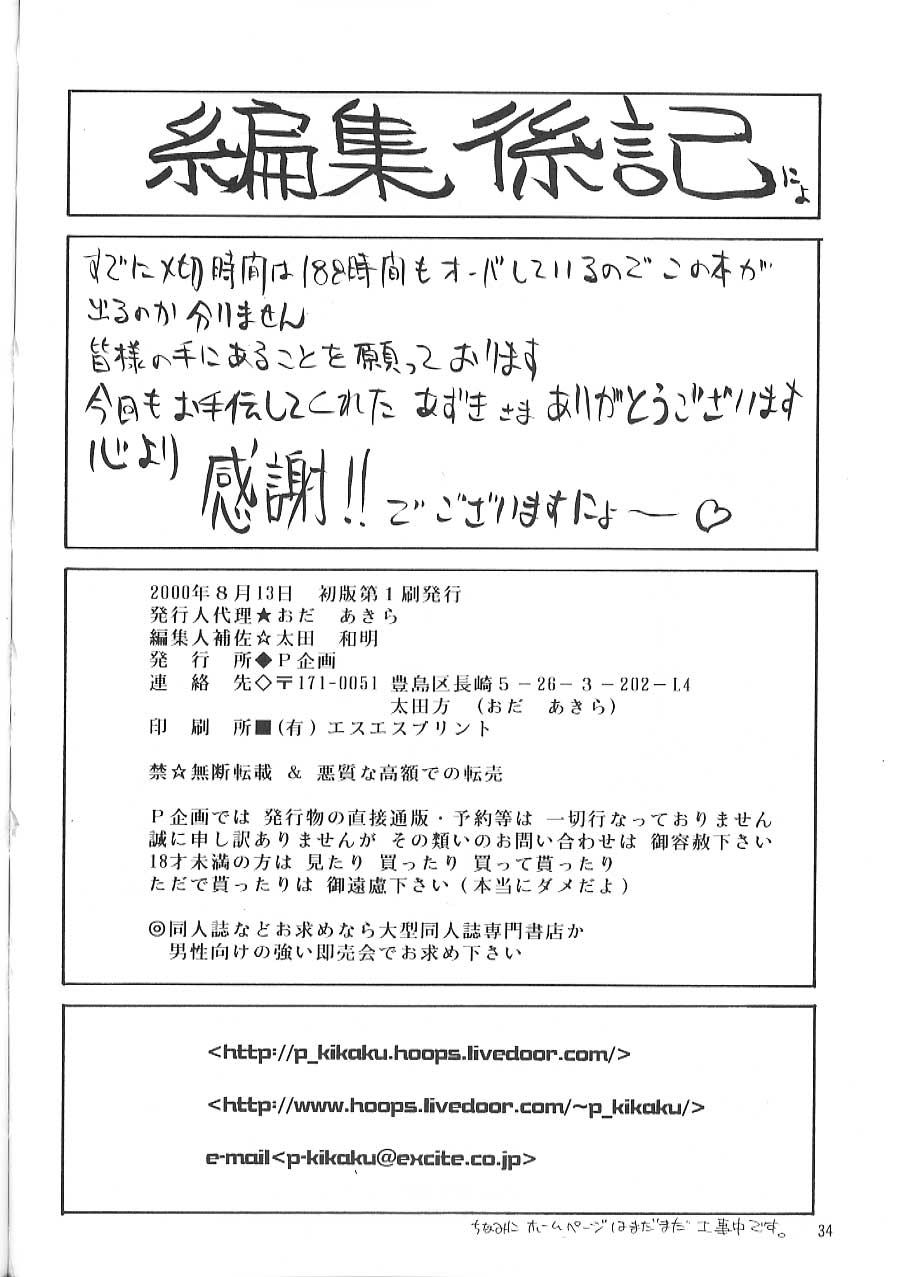 編集後記にょ
すでに〆切時間は188時間もオーバしているのでこの本が
出るのか分りません
皆様の手にあることを願っております
今回もお手伝してくれたあずきさまありがとうございます
心より感謝!!でございますにょ〜♡
2000年8月13日　初版第1刷発行
発行人代理★おだ　あきら
編集人補佐☆太田　和明
発　行　所◆P企画
連　絡　先◇〒171-0051 豊島区長崎5-26-3-202-L4
太田方　(おだ　あきら)
印　刷　所■(有)エスエスプリント
禁☆無断転載 & 悪質な高額での転売
P企画では 発行物の直接通版・予約等は 一切行なっておりません
誠に申し訳ありませんが その類いのお問い合わせは 御容赦下さい
18才未満の方は 見たり 買ったり 買って貰ったり
ただで貰ったりは 御遠慮下さい(本当にダメだよ)
◎同人誌などお求めなら大型同人誌専門書店か
男性向けの強い即売会でお求め下さい
<http://p_kikaku.hoops.livedoor.com/>
<http://www.hoops.livedoor.com/~p_kikaku/>
e-mail<p-kikaku@excite.co.jp>
ちなみに ホームページはまだまだ 工事中です。
34